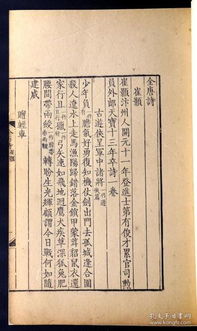 全唐詩
崔顥
崔顥汴州人開元十一年登進士第有俊才累官司勳
員外郎天寶十三年卒詩一卷
古遊俠呈軍中諸將
少年負膽氣好勇復知機仗劍出門去孤城逢合圍
殺人遼水上走馬漁陽歸錯落金鎖甲蒙茸貂鼠衣還
家行且獵弓矢速如飛地迥鷹犬疾草深狐兔肥
腰間帶兩綬轉眄生光輝顧謂今日戰何如隨
建威
贈輕車